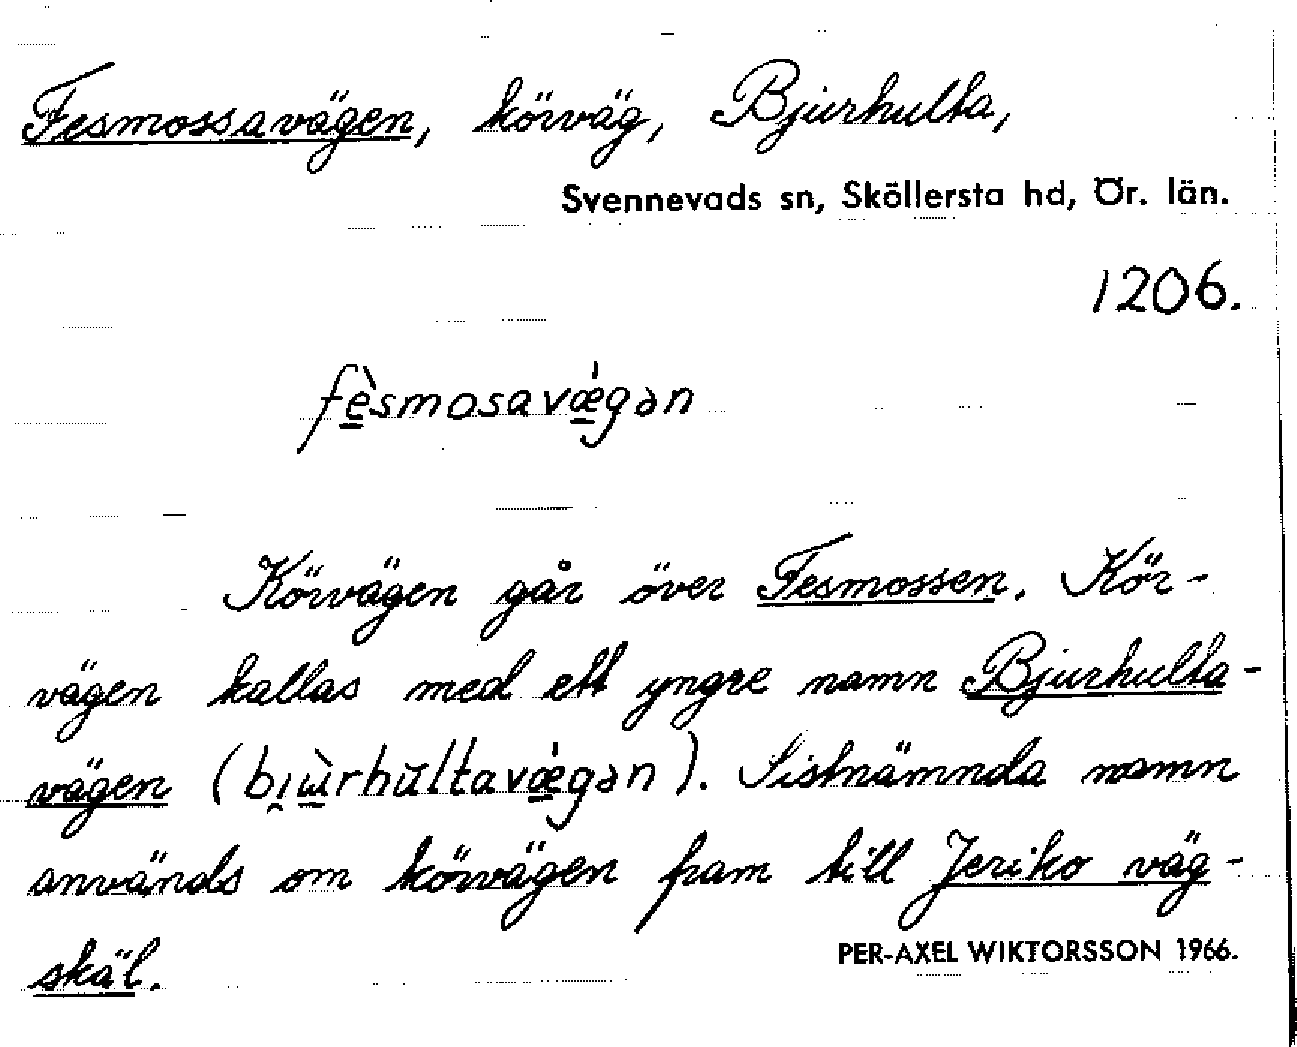 Fesmossavägen, körväg, Bjurhulta,
Svennevads sn, Sköllersta hd, Ör. län.
1206.
fè̲smosavǽ̲gən
Körvägen går över Fesmossen. Kör-
vägen kallas med ett yngre namn Bjurhulta-
vägen (bı̯ɯ̲̀rhu̇ltavǽ̲gən). Sistnämnda namn
används om körvägen fram till Jeriko väg-
skäl.
PER-AXEL WIKTORSSON 1966.